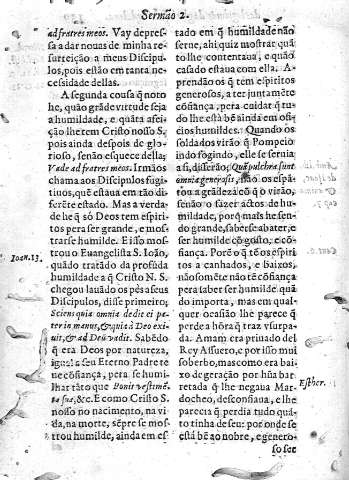 Sermão 2.
ad fratres meos. Vay depres-
sa a dar nouas de minha re-
surreição a meus Discipu-
los, pois estão em tanta ne-
cessidade dellas.
A segunda cousa q̃ noto
he, quão grãde virtude seja
a humildade, e quãta afei-
ção lhe tem Cristo nosso S.
pois ainda despois de glo-
rioso, senão esquece della;
Vade ad fratres meos. Irmãos
chama aos Discipulos fugi-
tiuos, que estaua em tão di-
ferẽte estado. Mas a verda-
de he q̃ só Deos tem espiri-
tos pera ser grande, e mos-
trarse humilde. E isso mos-
trou o Euangelista S. Ioão,
quãdo tratãdo da profũda
humildade a q̃ Cristo N. S.
chegou lauãdo os pès a seus
Discipulos, disse primeiro;
Ioan. 13.
Sciens quia omnia dedit ei pa-
ter in manus, & quia à Deo exi-
uit, & ad Deũ vadit. Sabẽdo
q̃ era Deos por natureza,
igual a seu Eterno Padre te-
ue cõfiança, pera se humi-
lhar tãto que Ponit vestimẽ-
ta sua, &c. E como Cristo S.
nosso no nacimento, na vi-
da, na morte, sẽpre se mos-
trou humilde, ainda em es-
tado em q̃ humildade não
serue, ahi quiz mostrar quã
to lhe contentaua, e quão
casado estaua com ella. A-
prendeo q̃ tem espiritos
generosos, a ter juntamẽte
cõfiança, pera cuidar q̃ tu-
do lhe està bẽ ainda em ofi-
cios humildes. Quando os
soldados virão q̃ Pompeio
indo fogindo, elle se seruia
a si, disserão; Quã pulchra sunt
omnia generosis, não os espã-
tou a grãdeza cõ q̃ o virão,
senão o fazer actos de hu-
mildade, porq̃ mais he sen-
do grande, saberse abater, e
ser humilde cõ gosto, e cõ-
fiança. Porẽ o q̃ tẽ os espiri-
tos acanhados, e baixos,
não somẽte não tẽ cõfiança
pera ser humilde quã-
do importa, mas em qual-
quer ocasião lhe parece q̃
perde a hõra q̃ traz vsurpa-
da. Amam era priuado del
Rey Assuero, e por isso mui
soberbo, mas como era bai-
xo de geração por hũa bar-
retada q̃ lhe negaua Mar-
docheo, desconfiaua, e lhe
Esther.
parecia q̃ perdia tudo quã-
to tinha de seu: por onde se
està bẽ ao nobre, e genero-
so ser